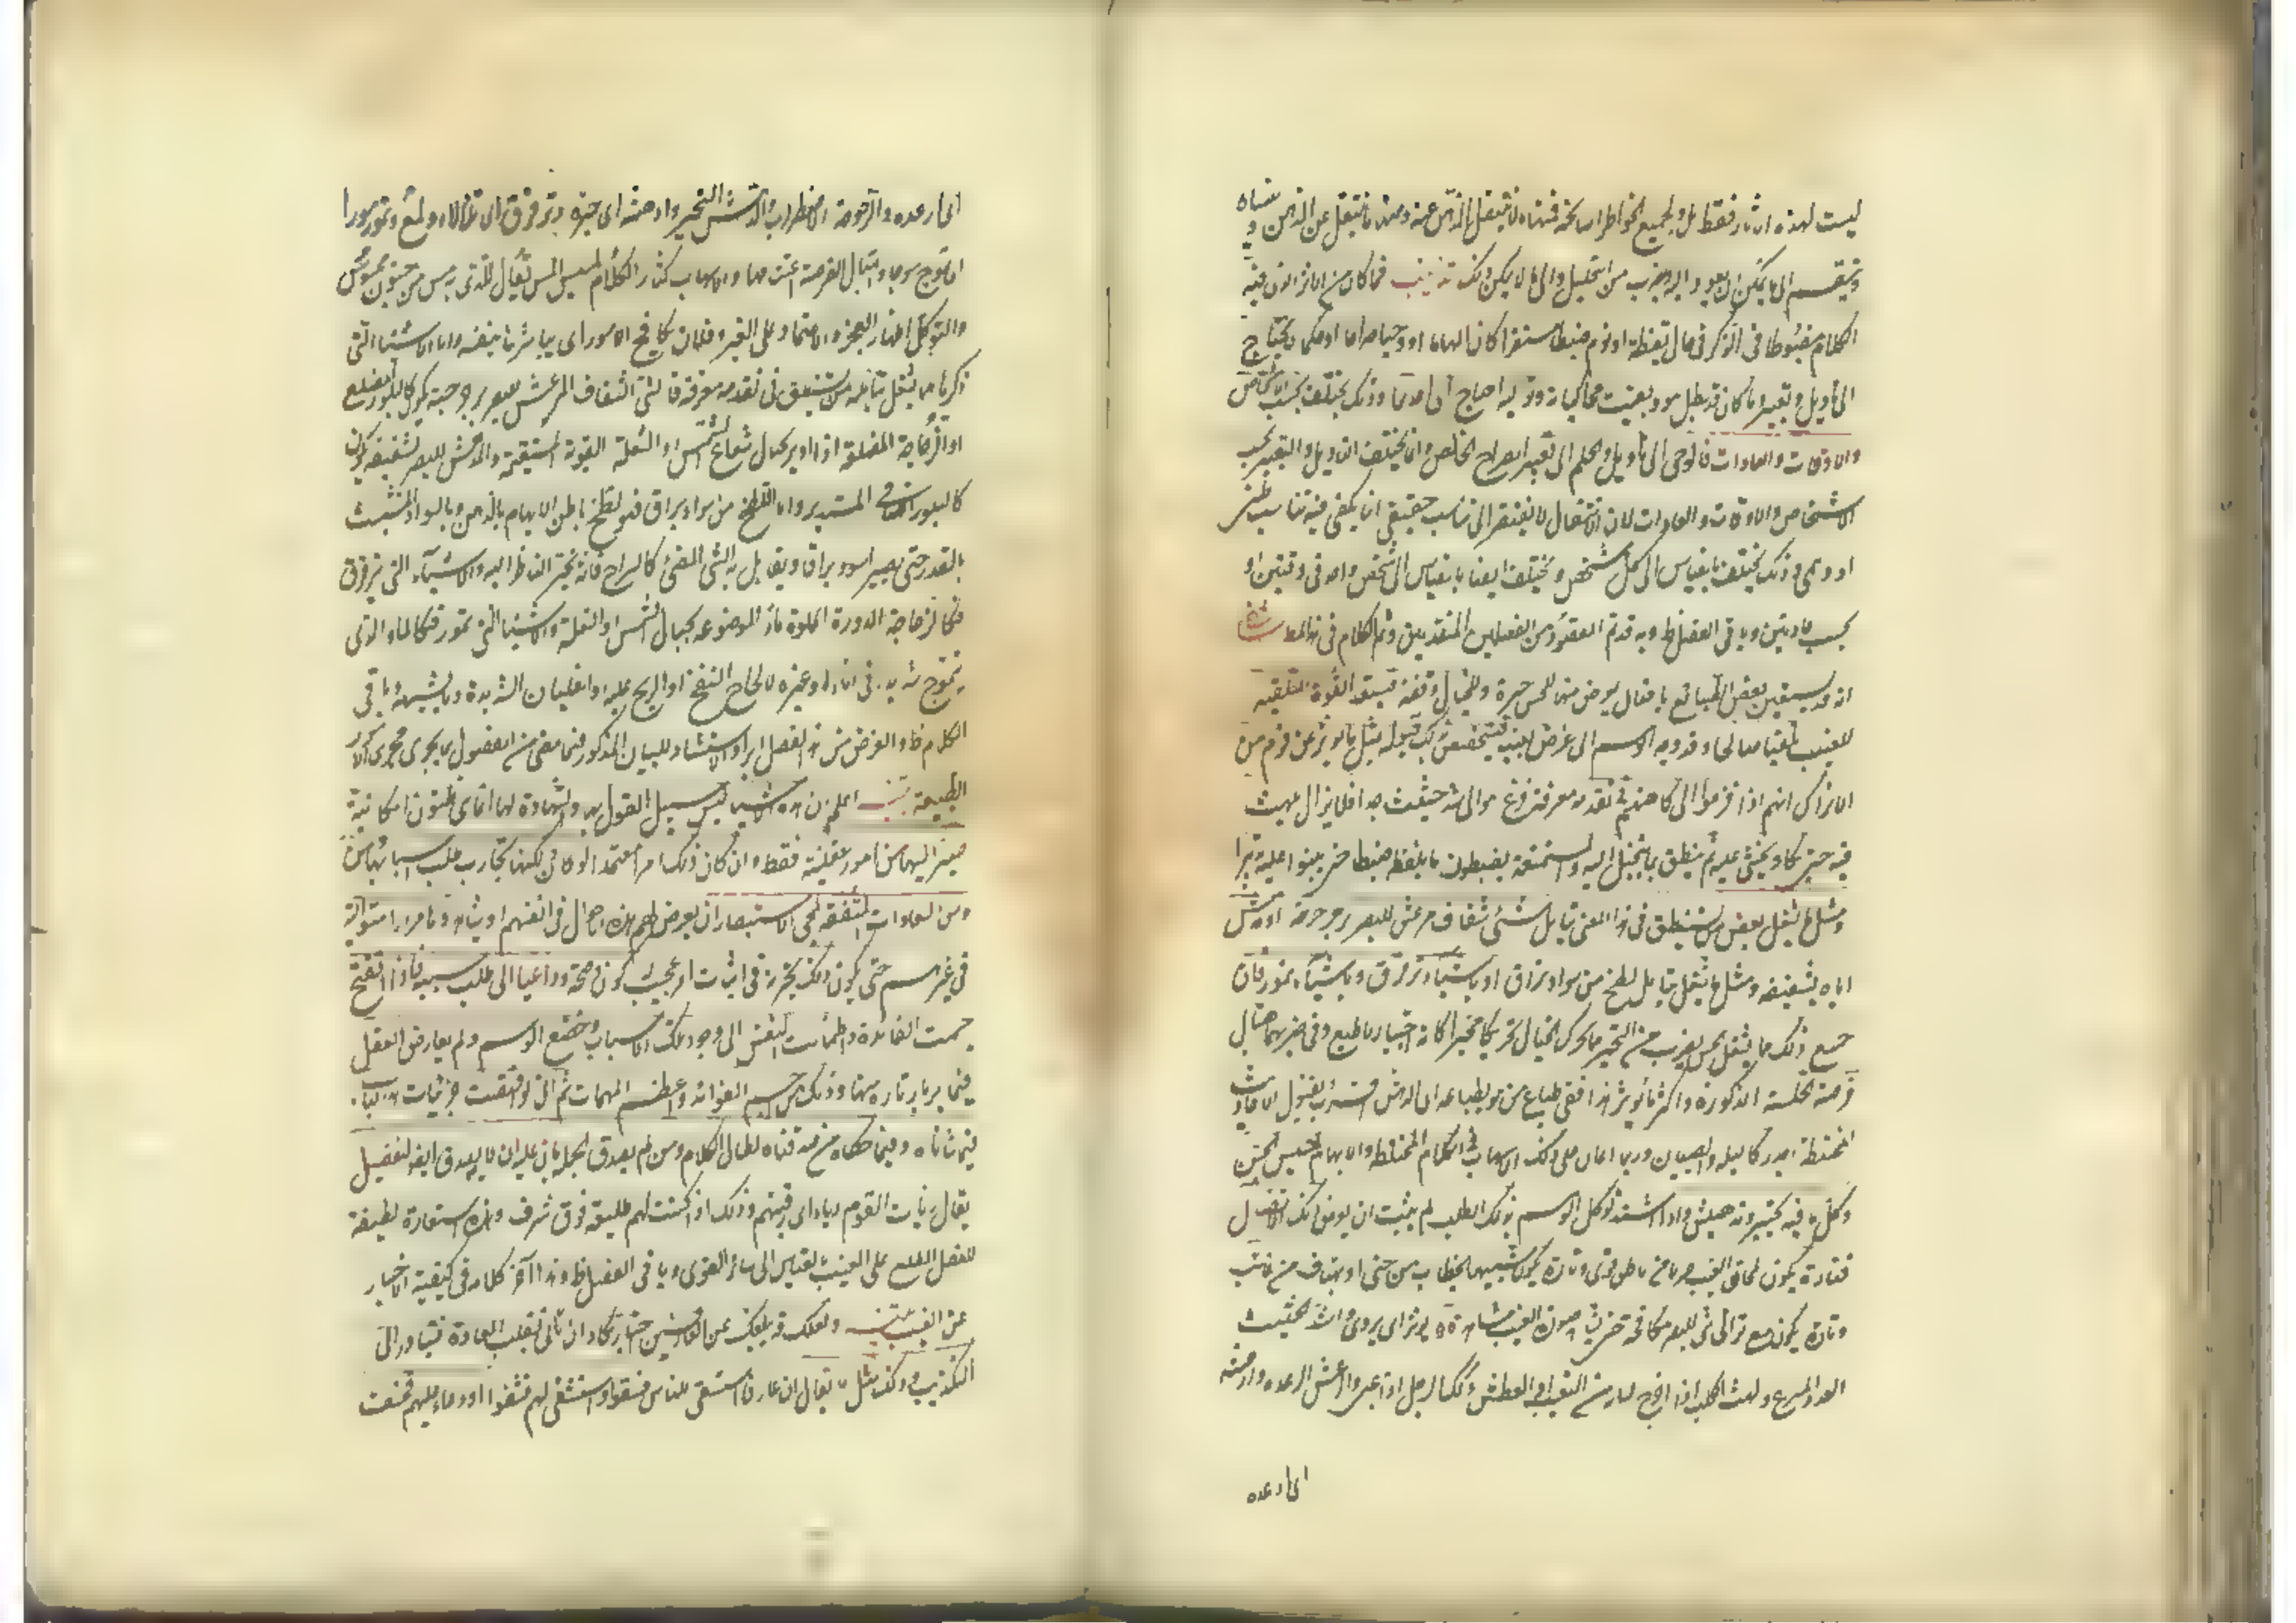 ليست لهذه الآثار فقط بل ولجميع الخواطر السانحة فمنها ما لا ينتقل الذهن عنه ومنها ما ينتقل عن الذهن وينساه
وينقسم الى ما يمكن ان يعود اليه بضرب من التحليل والى ما لا يمكن ذلك تذنيب فما كان من الاثر الذي فيه
الكلام مضبوطا فى الذكر فى حال يقظة او نوم ضبطا مستقرا كان الهاما او وحيا صراحا او حلما لا يحتاج
الى تأويل وتعبير وما كان قد بطل هو وبقيت محاكياته وتواليه احتاج الى احدهما وذلك يختلف بحسب الاشخاص
والاوقات والعادات فالوحى الى تأويل والحلم الى تعبير الصراح الخالص وانما يختلف التأويل والتعبير بحسب
الاشخاص والاوقات والعادات لان الانتقال لا يفتقر الى تناسب حقيقى انما يكفى فيه تناسب ظنى
او وهمى وذلك يختلف بالقياس الى كل شخص ويختلف ايضا بالقياس الى شخص واحد فى وقتين او
بحسب عادتين وباقى الفصل ظ وبه قد تم المقصود من الفصلين المتقدمين وتم الكلام فى هذا المط اشارة
انه قد يستعين بعض الطبائع بافعال يعرض منها للحس حيرة وللخيال وقفة فيستعد القوة المتلقية
للغيب تلقيا صالحا وقد وجه الوهم الى غرض بعينه فيتخصص بذلك قبوله مثل ما يؤثر عن قوم من
الاتراك انهم اذا فزعوا الى كاهنهم فى تقدمة معرفة فزع هو الى شد حثيث جدا فلا يزال يلهث
فيه حتى يكاد يغشى عليه ثم ينطق بما يتخيل اليه والمستمعة يضبطون ما يلفظه ضبطا حتى يبنوا عليه تدبيرا
ومثل ما يشغل بعض من يستنطق فى هذا المعنى بتأمل شئ شفاف مرعش للبصر برجرجته او مدهش
اياه بشفيفه ومثل ما يشغل بتأمل لطخ من سواد براق او باشياء تترقرق وباشياء تمور فان
جميع ذلك مما يشغل الحس بضرب من التحير ومما يحرك الخيال تحريكا محيرا كانه اجبار لا طبع وفى حيرتهما اهتبال
فرصة الخلسة المذكورة واكثر ما يؤثر هذا ففى طباع من هو بطباعه الى الدهش اقرب وبقبول الاحاديث
المختلطة اجدر كالبله والصبيان وربما اعان على ذلك الاسهاب فى الكلام المختلط والابهام لمسيس الجن
وكل ما فيه تحيير وتدهيش واذا اشتد توكل الوهم بذلك الطلب لم يلبث ان يعرض ذلك الاتصال
فتارة يكون لمحان الغيب ضربا من ظن قوى وتارة يكون شبيها بخطاب من جنى او هتاف من غائب
وتارة يكون مع تراءى شئ للبصر مكافحة حتى يشاهد صورة الغيب مشاهدة يؤثر اى يروى والشد الحثيث
العدو المسرع ولهث الكلب اذا اخرج لسانه من التعب او العطش وكذا الرجل اذا اعيى والرعش الرعدة وارعشه
اى ارعده
اى ارعده والرجرجة الاضطراب والدهش التحير وادهشه اى حيره وترقرق اى تلألأ ولمع وتمور مورا
اى تموج موجا واهتبال الفرصة اغتنامها والاسهاب كثرة الكلام والمسيس المس يقال للذى به مس من جنون ممسوس
والتوكل اظهار العجز والاعتماد على الغير وفلان يكافح الامور اى يباشرها بنفسه واما الاشياء التى
ذكرها مما يشغل بتأمله من يستنطق فى تقدمة معرفة فالشئ الشفاف المرعش للبصر برجرجته يكون كالبلور المضلع
او الزجاجة المضلعة اذا ادير بحيال شعاع الشمس او الشعلة القوية المستقيمة والمدهش للبصر بشفيفه يكون
كالبلور الصافى المستدير واما اللطخ من سواد براق فهو لطخ باطن الابهام بالدهن وبالسواد المتشبث
بالقدر حتى يصير اسود براقا ويقابل به الشئ المضئ كالسراج فانه يحير الناظر اليه والاشياء التى تترقرق
فكالزجاجة المدورة المملوة ماء الموضوعة بحيال الشمس او الشعلة والاشياء التى تمور فكالماء الذى
يتموج شديدا فى اناء او غيره لالحاح النفخ او الريح عليه او لغليان الشديد وما يشبهه وباقى
الكلام ظ والغرض من هذا الفصل ايراد الاستشهاد للبيان المذكور فيما مضى من الفصول بما يجرى مجرى الامور
الطبيعية تنبيه اعلم ان هذه الاشياء ليس سبيل القول بها والشهادة لها انما هى ظنون امكانية
صير اليها من امور عقلية فقط وان كان ذلك امرا معتمدا لو كان ولكنها تجارب طلب اسبابها لما ثبتت
ومن السعادات المتفقة لمحبى الاستبصار ان يعرض لهم هذه الاحوال فى انفسهم او يشاهدوها مرارا متوالية
فى غيرهم حتى يكون ذلك تجربة فى اثبات امر عجيب له كون وصحة وداعيا الى طلب سببه فاذا اتضح
جسمت الفائدة واطمأنت النفس الى وجود تلك الاسباب وخضع الوهم ولم يعارض العقل
فيما يربأ ربأه منها وذلك من اجسم الفوائد واعظم المهمات ثم انى لو اقتصصت جزئيات هذا الباب
فيما شاهدناه وفيما حكاه من صدقناه لطال الكلام ومن لم يصدق الجملة هان عليه ان لا يصدق ايضا التفصيل
يقال ربأت القوم ربأ اى رقبتهم وذلك اذا كنت لهم طليعة فوق شرف وهذه استعارة لطيفة
للعقل المطلع على الغيب بالقياس الى سائر القوى وباقى الفصل ظ وهذا آخر كلامه فى كيفية الاخبار
عن الغيب تنبيه ولعلك قد يبلغك عن العارفين اخبار تكاد ان تأتى بقلب العادة فتبادر الى
التكذيب وذلك مثل ما يقال ان عارفا استسقى للناس فسقوا او استشفى لهم فشفوا او دعا عليهم فخسف